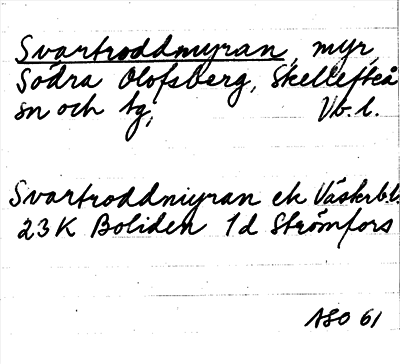 Svartroddmyran, myr,
Södra Olofsberg, Skellefteå
sn och tg, Vb. l.
Svartroddmyran ek Västerb.l.
23K Boliden 1d Strömfors
ASO 61